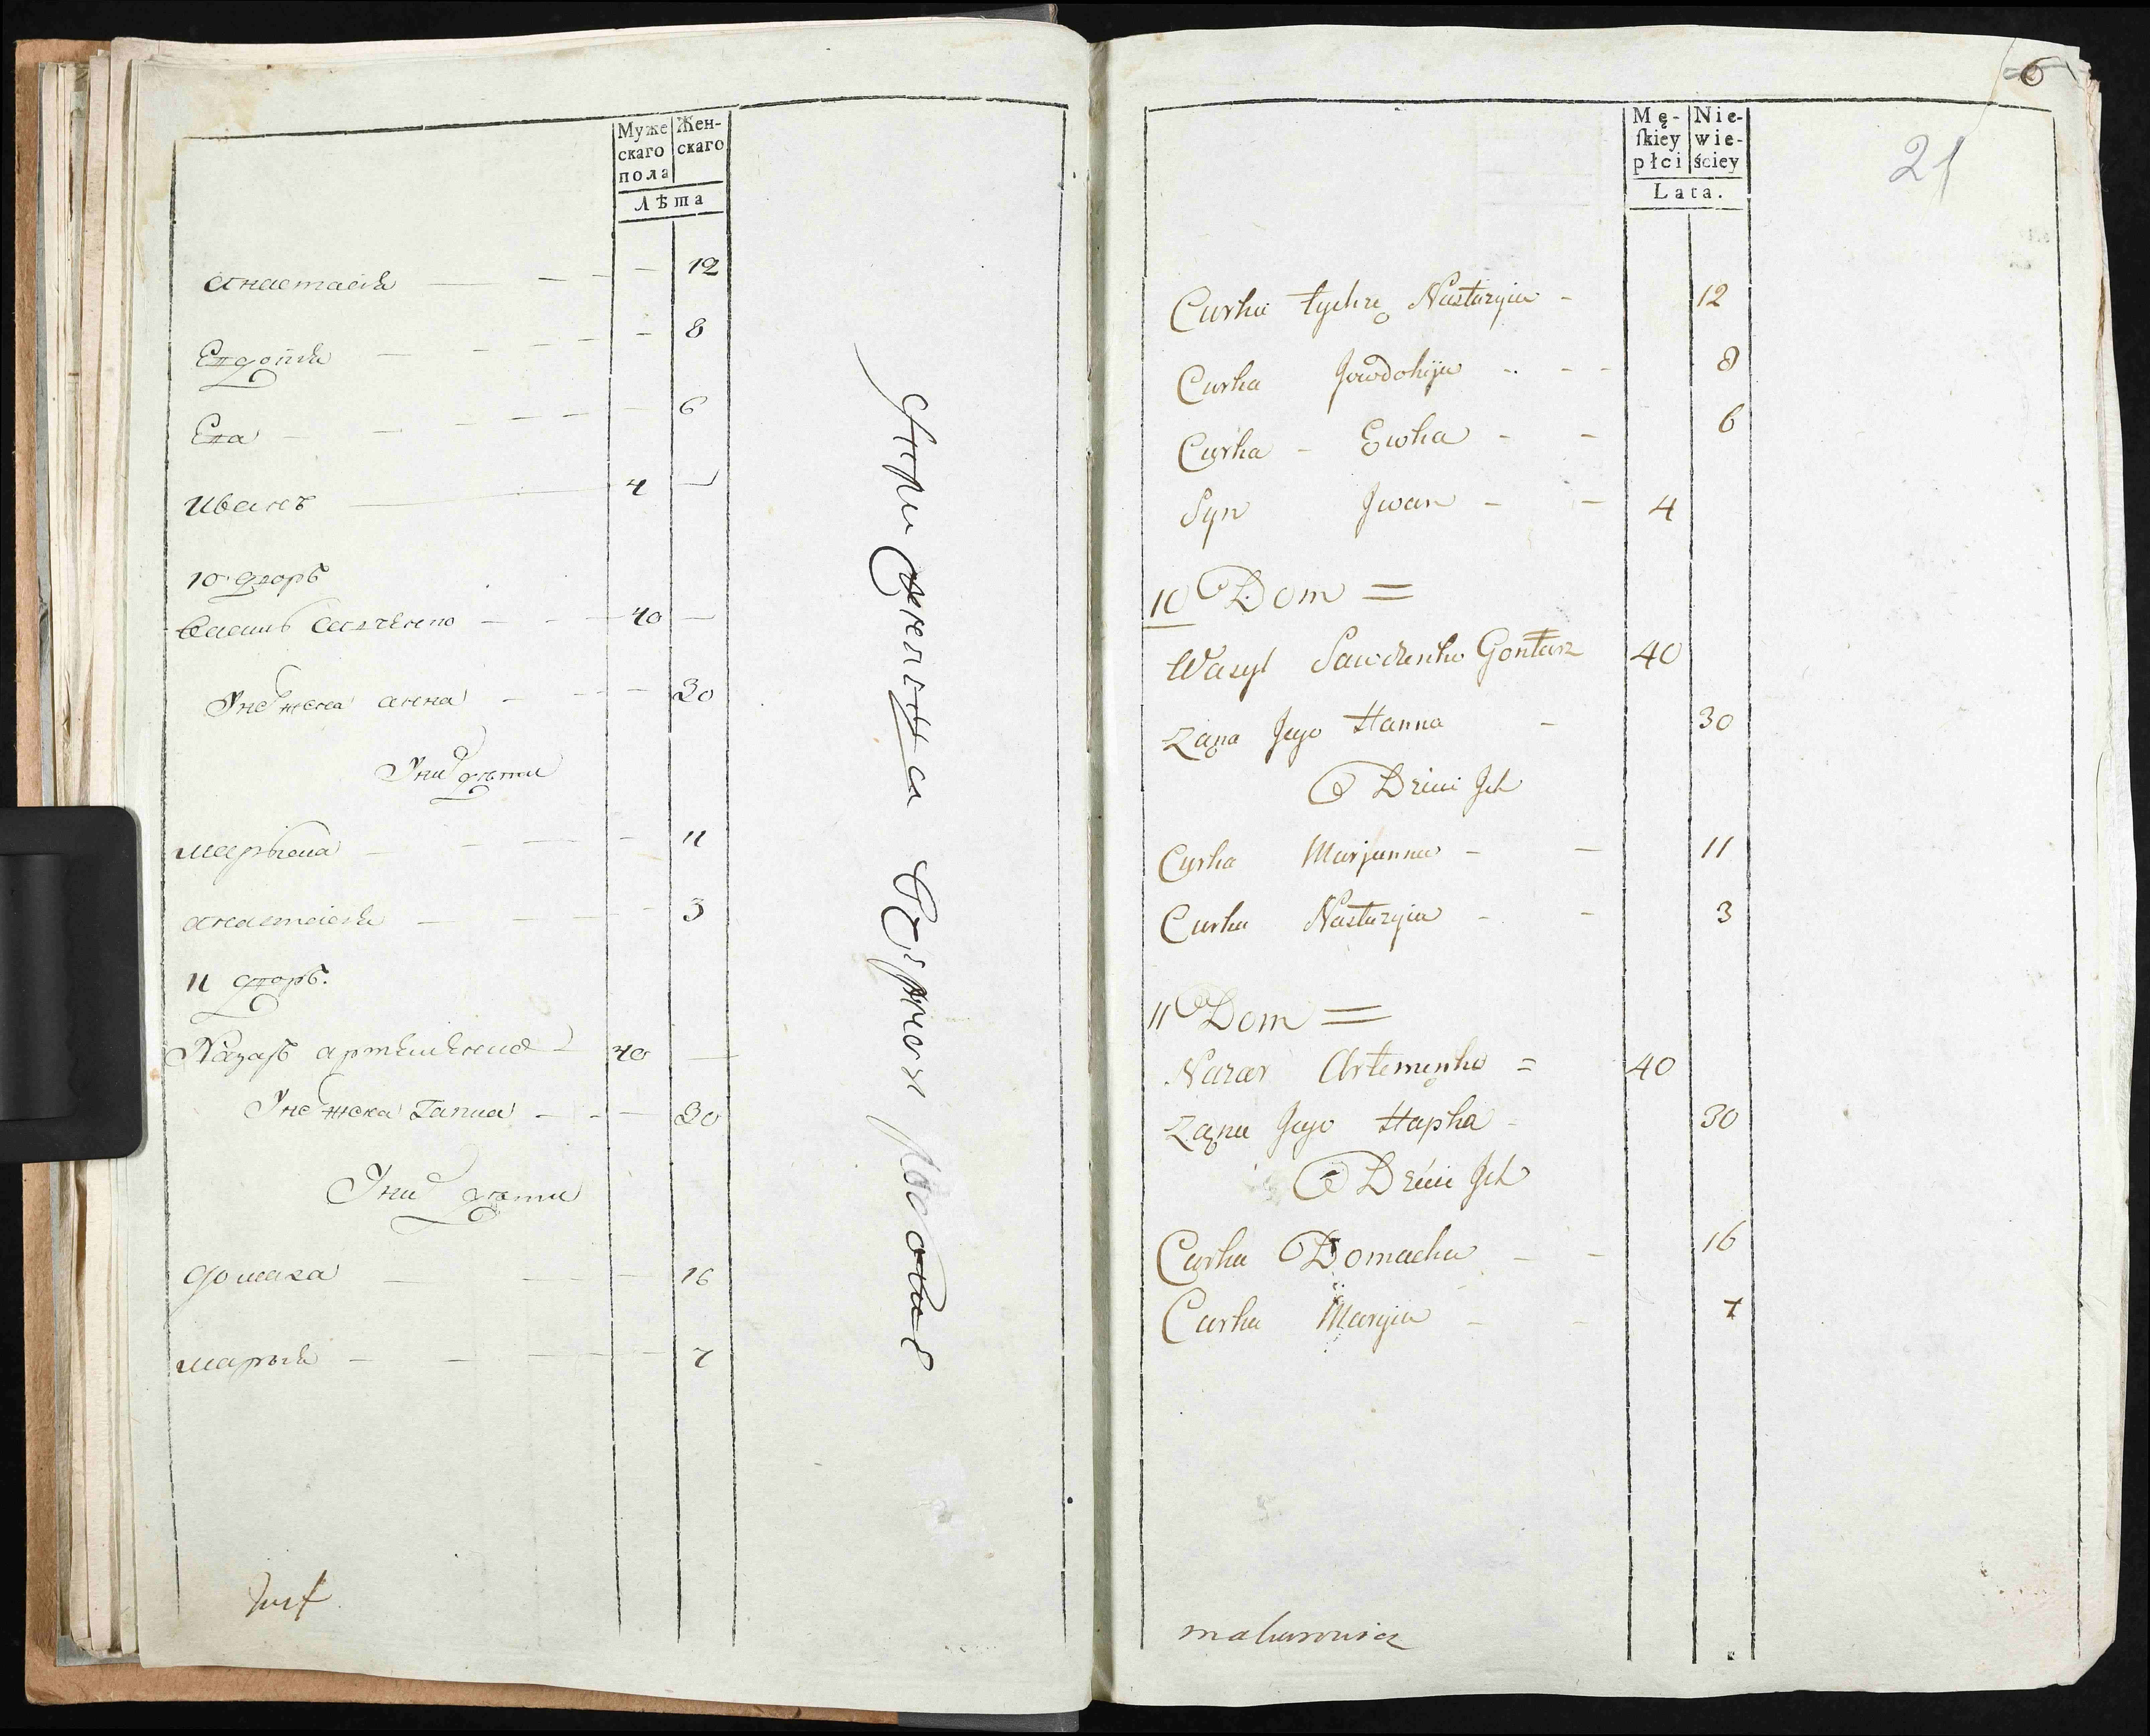 Муже
скаго
пола
Жен-
скаго
Лѣта
анастасія 12
Евдокія 8
Ева 6
Иванъ 4
10 дворъ
Василь Савченко 40
У нѣ жена анна 30
У ни дѣти
марьяна 11
анастасія 3
11 дворъ.
Назаръ артеменко 40
У нѣ жена Гапка 30
У ни дѣти
домаха 16
марыя 7
Just
6
21
Mę-
ſkiey
płci
Nie-
wie-
ściey
Lata.
Curka tychże Nastazyia 12
Curka Jewdokija 8
Curka Ewka 6
Syn Jwan 4
10 Dom =
Wasyl Sawczenko Gontarz 40
Żąna Jego Hanna 30
Dzieci Jch
Curka Marjanna 11
Curka Nastazyia 3
11 Dom =
Nazar Artemęnko = 40
Żąna Jego Hapka 30
Dzieci Jch
Curka Domacha 16
Curka Maryia 7
makarowicz